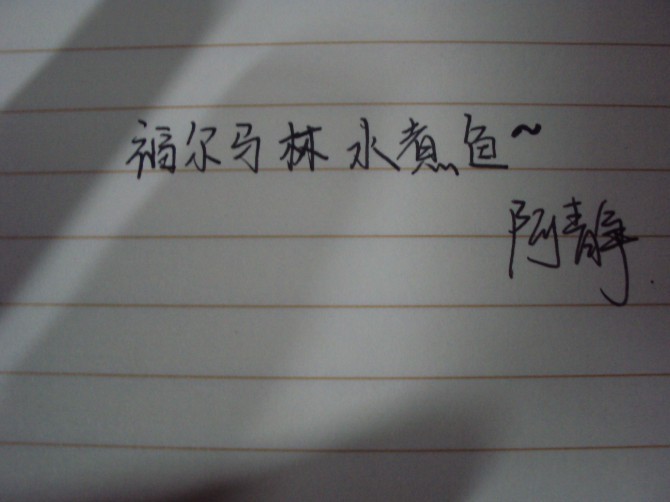 福尔马林水煮鱼~
阿静